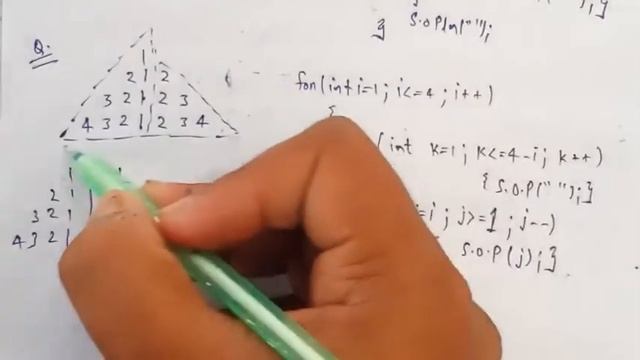 } S.O.Pln("");
Q.
1
2 1 2
3 2 1 2 3
4 3 2 1 2 3 4
for(int i=1; i<=4; i++)
{
(int k=1; k<=4-i; k++)
{ S.O.P(" ");}
=i; j>=1; j--)
S.O.P(j);}
1 1
2 1
3 2 1
4 3 2 1